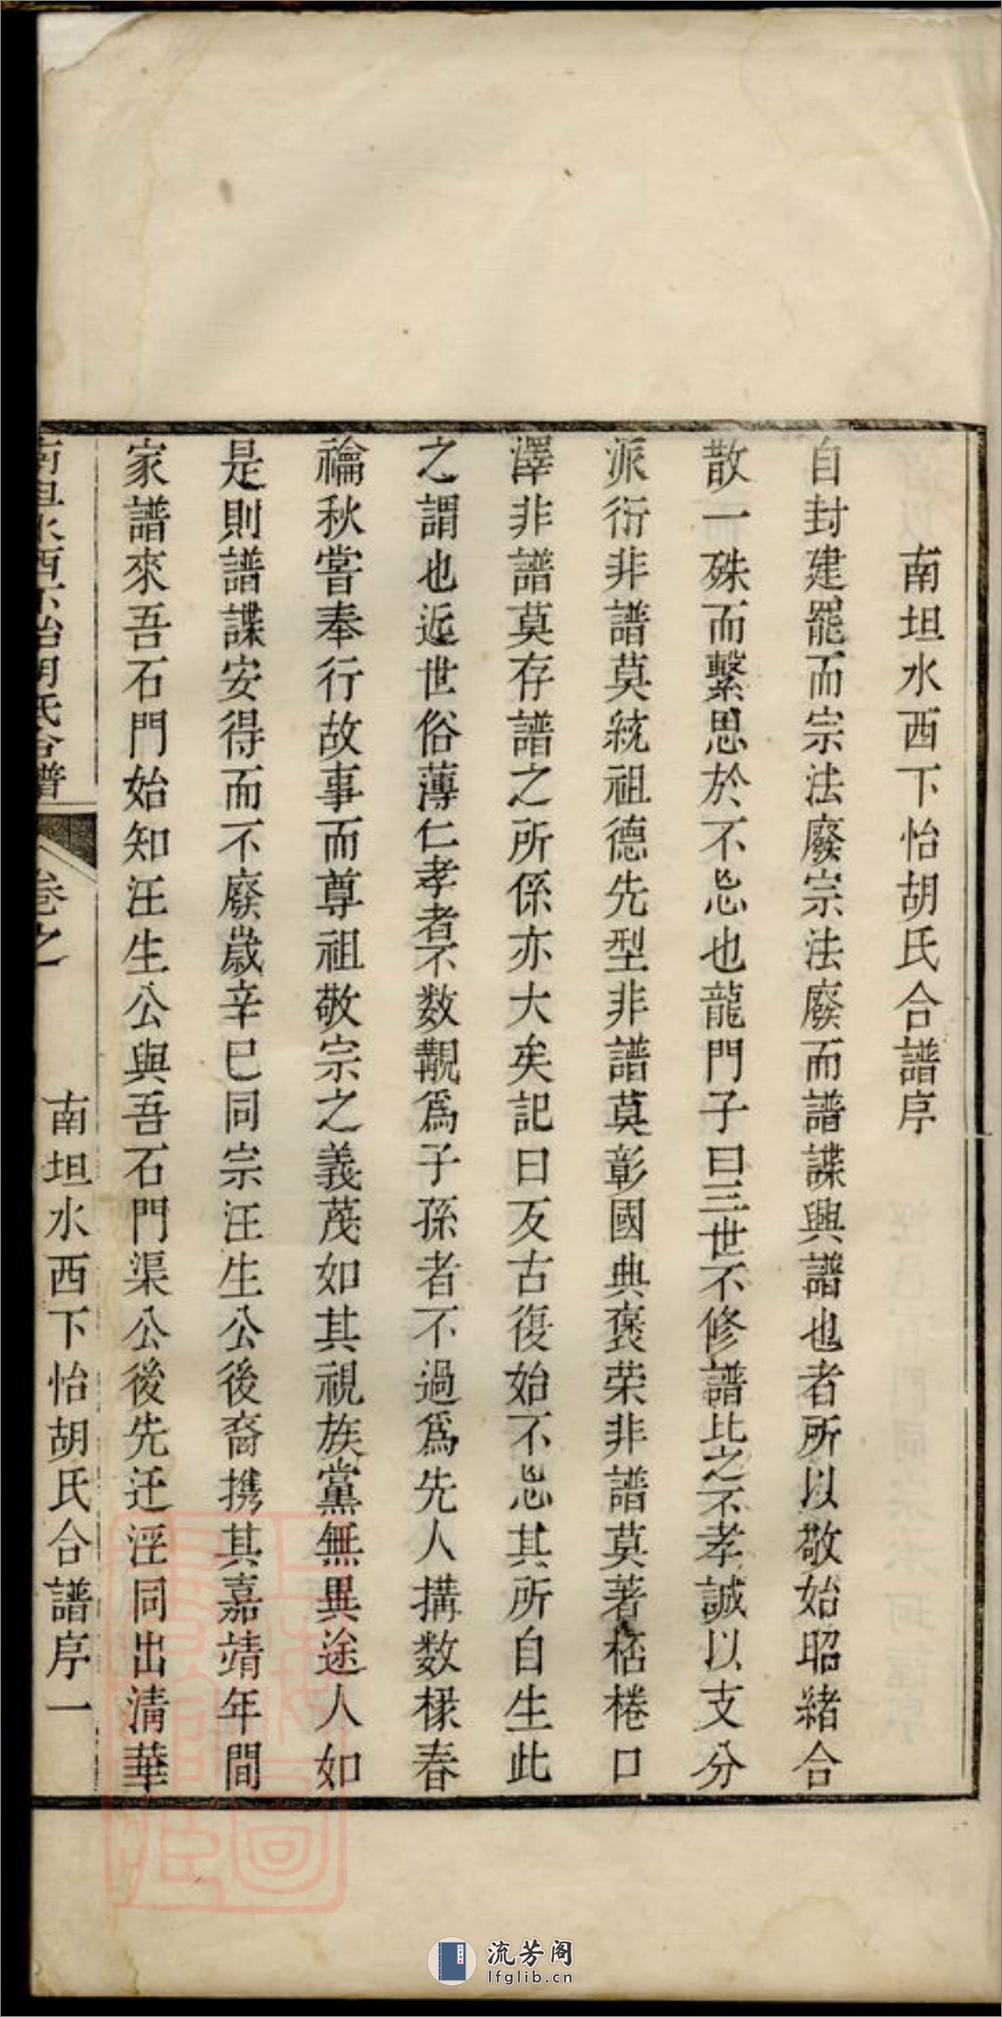 南坦水西下怡胡氏合譜序
自封建罷而宗法廢宗法廢而譜諜興譜也者所以敬始昭緒合
散一殊而繫思於不忘也龍門子曰三世不修譜比之不孝誠以支分
派衍非譜莫統祖德先型非譜莫彰國典褒荣非譜莫著桮棬口
澤非譜莫存譜之所係亦大矣記曰反古復始不忘其所自生此
之謂也近世俗薄仁孝者不数覯為子孫者不過為先人搆数椽春
禴秋嘗奉行故事而尊祖敬宗之義茂如其視族黨無異途人如
是則譜諜安得而不廢歲辛巳同宗汪生公後裔携其嘉靖年間
家譜來吾石門始知汪生公與吾石門渠公後先迁涇同出清華
南坦水西下怡胡氏合譜
卷之一
南坦水西下怡胡氏合譜序一
流芳阁
lfglib.cn